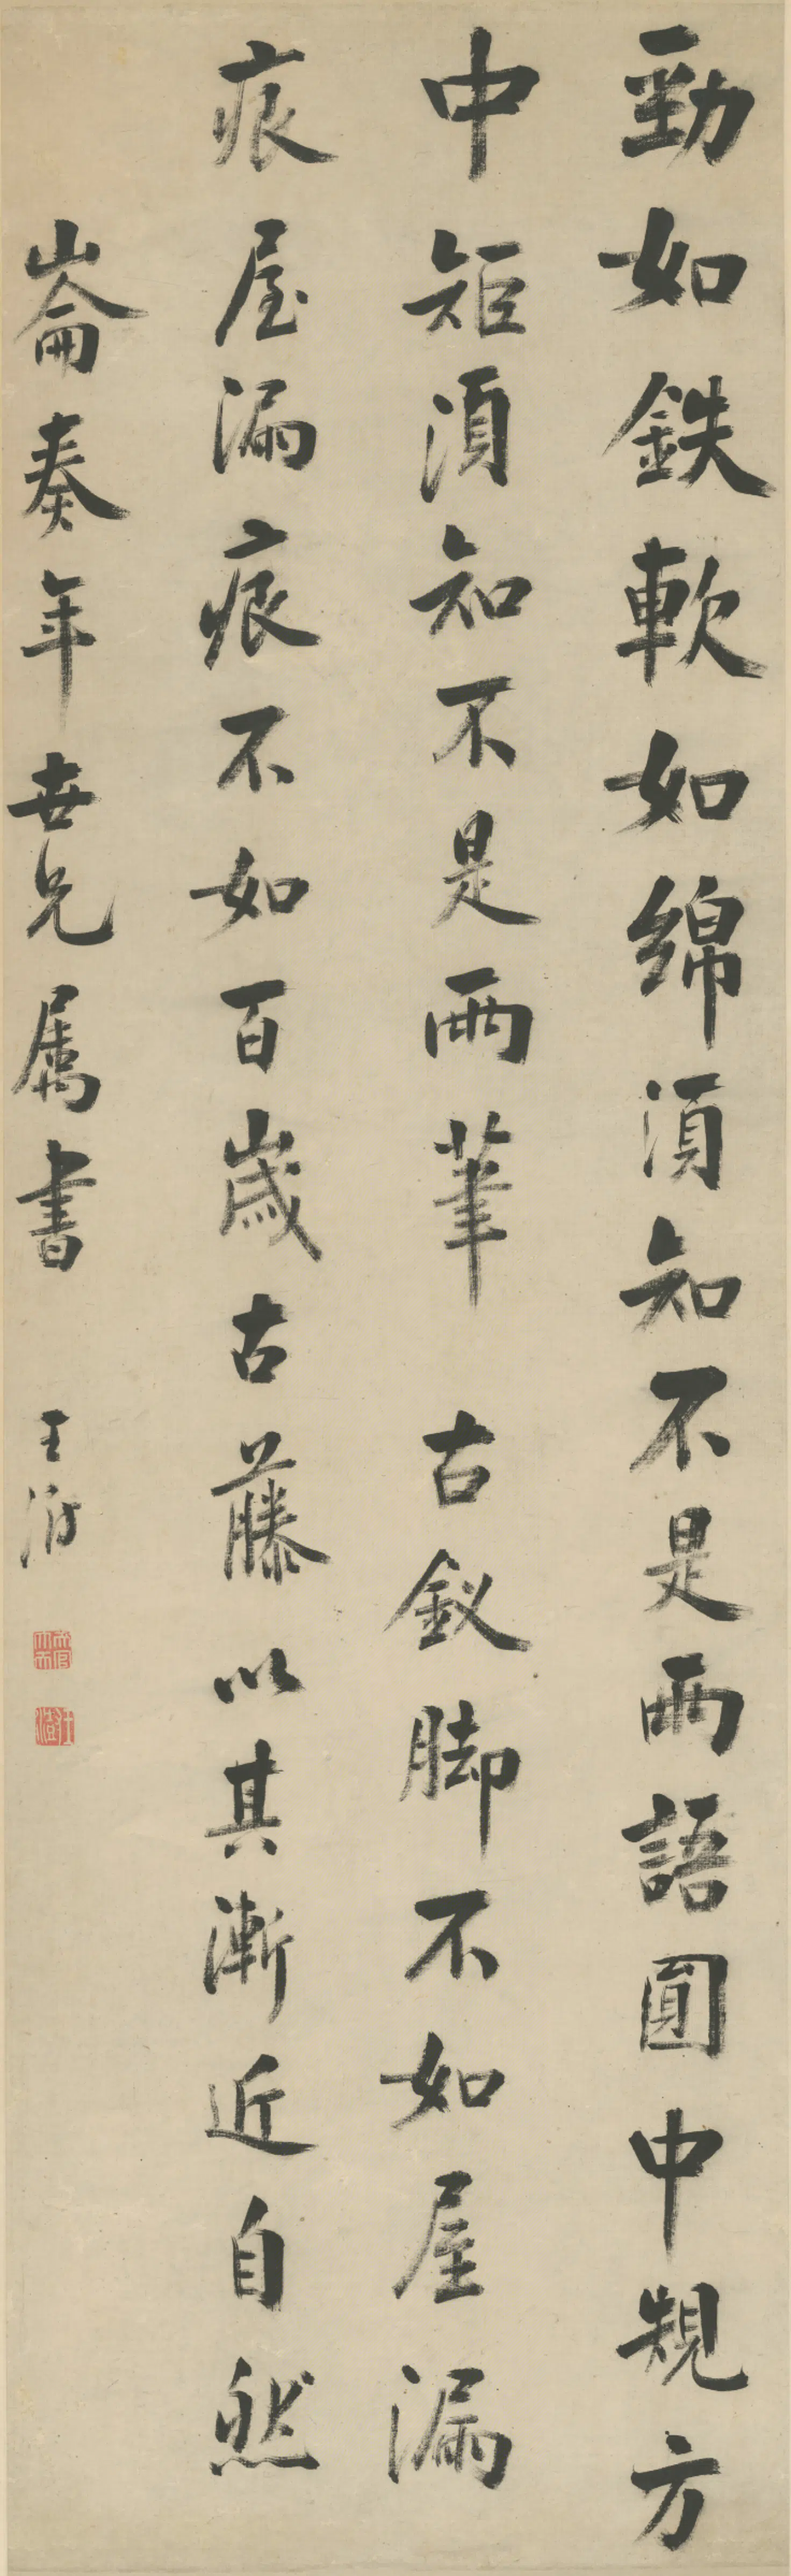 勁如鉄軟如綿須知不是兩語圓中規方
中矩須知不是兩筆古釵脚不如屋漏
痕屋漏痕不如百歲古藤以其漸近自然
崙奏年世兄属書 王澍